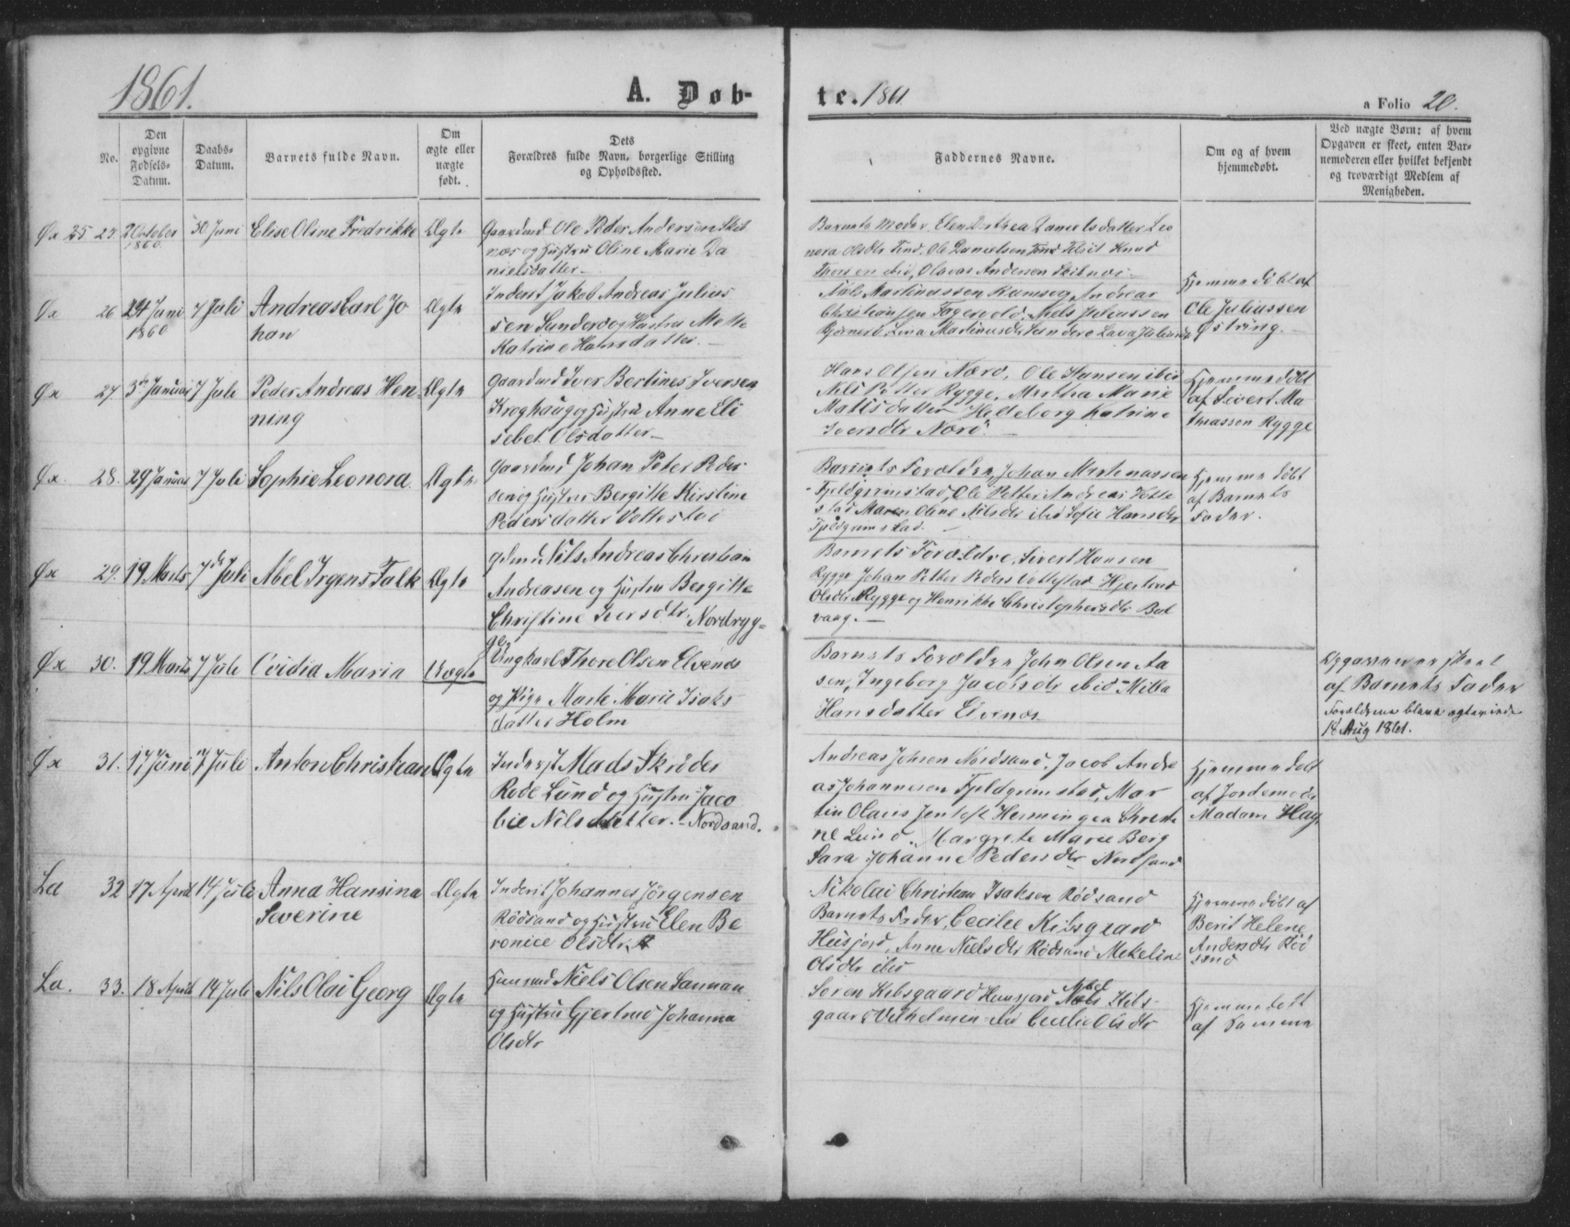 1861.
A. Døb-
te. 1861
a Folio 20.
No.
Den opgivne Fødsels-Datum.
Daabs-Datum.
Barnets fulde Navn.
Om ægte eller uægte født.
Dets
Forældres fulde Navn, borgerlige Stilling
og Opholdssted.
Faddernes Navne.
Om og af hvem
hjemmedøbt.
Ved uægte Børn: af hvem
Opgaven er skeet, enten Bar-
nemoderen eller hvilket bekjendt
og troværdigt Medlem af
Menigheden.
Øx 25 October 1860 30 Juni Elise Oline Fredrikke Ægte
Gaardmd Ole Peder Andersen
og Hustru Oline Marie Da
nielsdatter
Barnets Moder, Elen Dortea Danielsdatter Leo
nora Olsdtr Ole Danielsen Knud
Olavus Andersen
26 24 Juni 1860 7 Juli Andreas Carl Jo
han
Ægte
Inderst Jakob Andreas Julius
sen Sunderø og Hustru Mette
Katrine Hansdatter.
Niels Martinussen Andreas
Christiansen Niels Juliussen
Hjemmedøbt af
Ole Juliussen
Østring.
Øx 27 3 Januar 7 Juli Peder Andreas Hen
ning
Ægte
Gaardmd Iver Bertines Iversen
Kroghaug og Hustru Anne Eli
sebet Olsdatter
Hans Olsen Nærø, Ole Hansen ibid
Nils Petter Rygge, Martha Marie
Matisdatter Helleborg Katrine
Iversdtr Nærø.
Hjemmedøbt
af Sivert Ma
thiassen Rygge
Øx. 28. 29 Januar 7 Juli Sophie Leonora Ægte
Gaardmd Johan Peter Peder
sen og Hustru Bergitte Kirstine
Pedersdatter Vottestad
Barnets Forældre, Johan Martinussen
Fjeldgrimstad, Ole Petter Andreas Votte
stad Maren Oline Nilsdtr ibid Sofie Hansdtr
Fjeldgrimstad.
Hjemmedøbt
af Barnets
Fader.
Øx 29. 19 Marts 7de Juli Abel Irgens Falk Ægte
Nils Andreas Christian
Andreasen og Hustru Bergitte
Christine Iversdtr. Nordryg=
ge
Barnets Forældre, Sivert Hansen
Rygge Johan Petter Peders Vottestad Hjertrud
Olsdtr Rygge og Henrikke Christophersdtr Bol
vaag.
Øx 30. 19 Marts 7 Juli Ovidia Maria Uægte
Ungkarl Thore Olsen Elvenes
og Pige Marte Marie Isaks
datter Holm
Barnets Forældre John Olsen Aa
sen, Ingeborg Jacobsdtr ibid Milla
Hansdatter Elvenes
Opgaven er skeet
af Barnets Fader
Forældrene bleve ægteviede
18 Aug 1861.
Øx 31. 17 Juni 7 Juli Anton Christian Ægte
Inderst Mads Skrøder
Rode Lund og Hustru Jaco
bie Nilsdatter. Nordsand.
Andreas Johsen Nordsand, Jacob Andre
as Johannesen Fjeldgrimstad, Mar
tin Olaus Jentoft Hermingea Christi
ne Lund. Margrete Marie Berg
Sara Johanne Pedersdtr Nordsand
Hjemmedøbt
af Jordemoder
Madam Hag
La 32 17 April 14 Juli Anna Hansina
Severine
Ægte
Inderst Johannes Jørgensen
Rødsand og Hustru Elen Be
ronice Olsdtr
Nikolai Christian Isaksen Rødsand
Barnets Fader, Cecilie Kibsgaard
Husjord, Anne Nielsdtr Rødsand Mekeline
Olsdtr ibid
Hjemmedøbt af
Berit Helene
Andersdtr Rød
sand
La. 33. 18 April 14 Juli Nils Olai Georg Ægte
Huusmd Niels Olsen
og Hustru Gjertrud Johanna
Olsdtr
Søren Kibsgaard Huusjord Niels Kibs-
gaard Vilhelmsen ibid Cecilie Olsdtr
Hjemmedøbt
af Samme